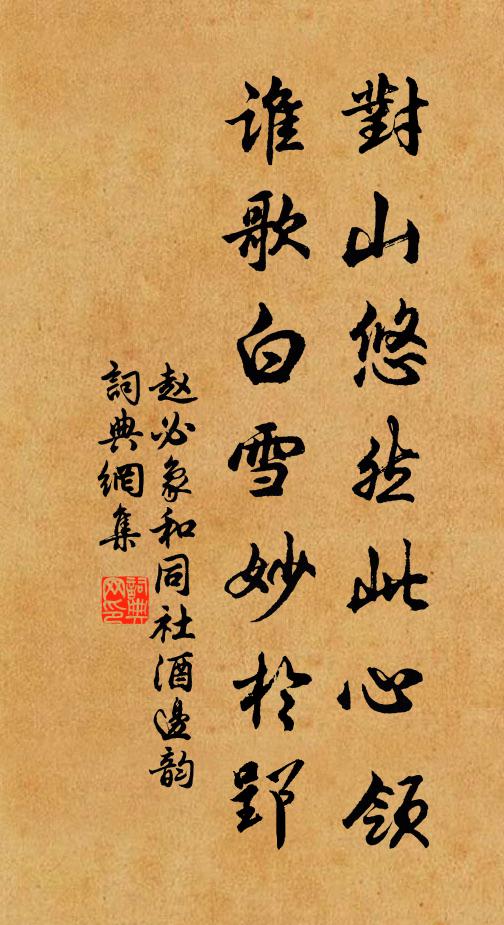 對山悠然此心領
誰歌白雪妙於郢
赵必象和同社酒邊韵
詞典網集
詞典網印